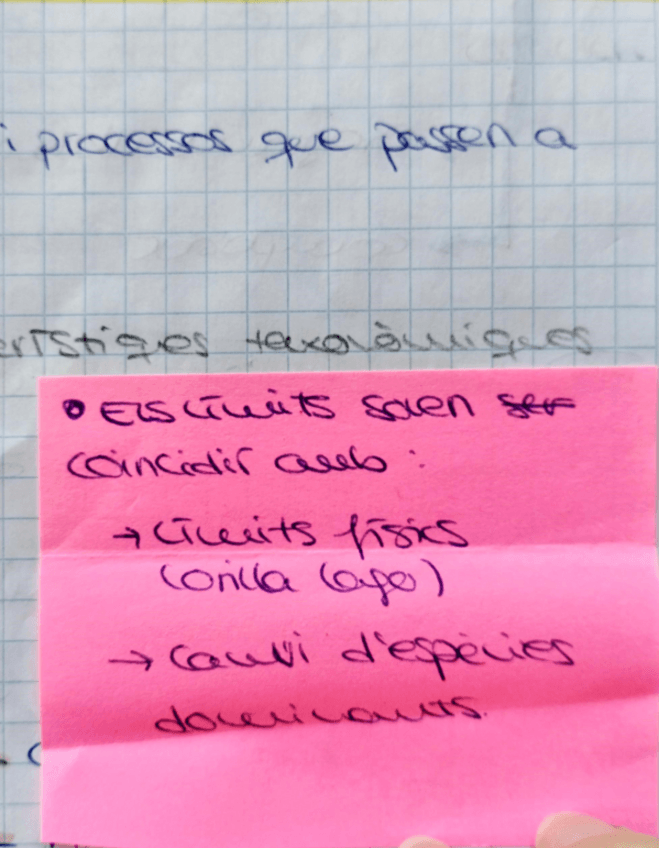 i processos que passen a
erístiques taxonòmiques
• Els límits solen ser
coincidir amb :
→ límits físics
(orilla lago)
→ Canvi d'espècies
dominants.